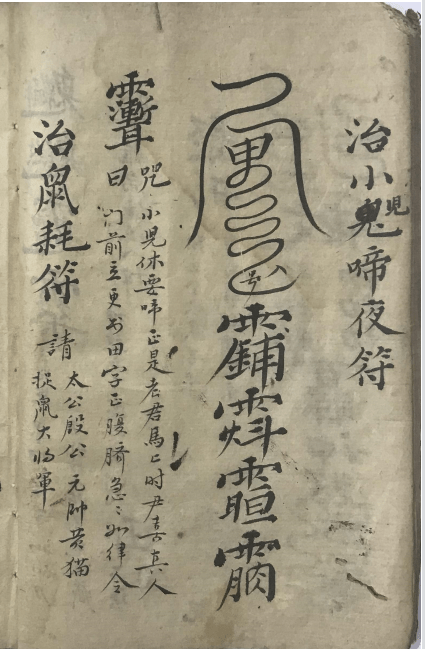 治小鬼児啼夜符
更
号
咒小児休要啼正是老君馬上时尹喜真人
曰门前立更书田字正腹臍急〻如律令
治鼠耗符
請
太公殷公元帅黄猫
捉鼠大将軍